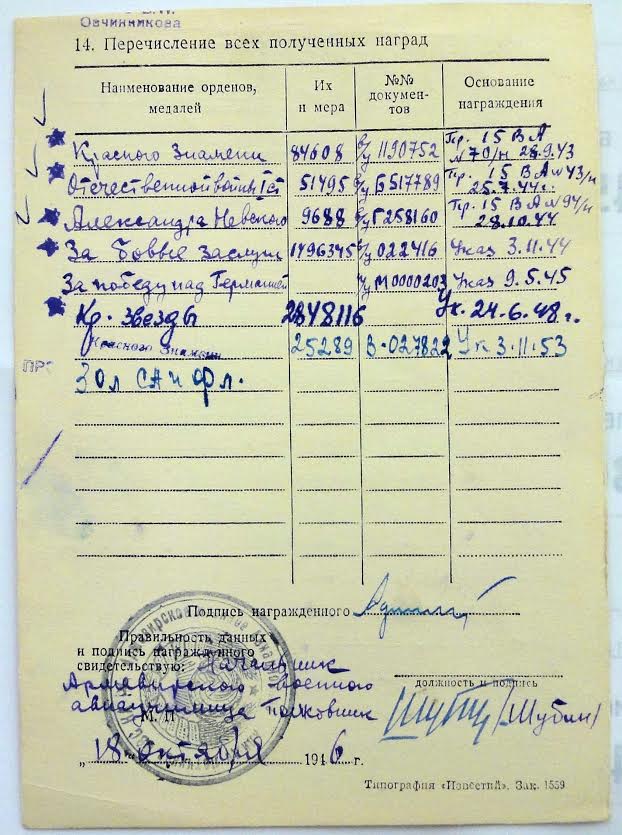 Овчинникова
14. Перечисление всех полученных наград
Наименование орденов, медалей | Их н мера | №№ документов | Основание награждения
Красного Знамени 84608 в/ч 1190752 Пр. 15 ВА №70/н 28.9.43
Отечественной войны Iст 51495 Б517789 Пр. 15 ВА №43/н 25.7.44г.
Александра Невского 9688 Г258160 Пр. 15 ВА №94/н 28.10.44
За боевые заслуги 1496345 022416 Указ 3.11.44
За победу над Германией М0000203 Указ 9.5.45
Кр. Звезды 2848116 Ук. 24.6.48 г.
Красного Знамени 25289 В.027822 Ук 3.11.53
ПРО
Подпись награжденного
Правильность данных
и подпись награжденного
свидетельствую: Начальник
Армавирского военного
авиаучилища Полковник
М. П.
должность и подпись
/Шубин/
„18" октября 1946 г.
Типография «Известий». Зак. 1559